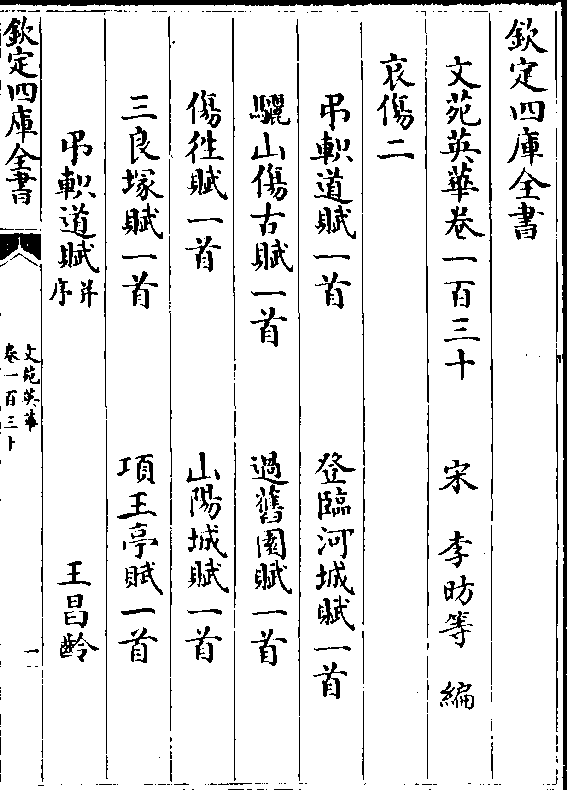 欽定四庫全書
文苑英華卷一百三十 宋 李昉等 編
哀傷二
弔軹道賦一首 登臨河城賦一首
驪山傷古賦一首 過舊園賦一首
傷徃賦一首 山陽城賦一首
三良塚賦一首 項王亭賦一首
弔軹道賦并序 王昌齡
欽定四庫全書
文苑英華
卷一百三十
一